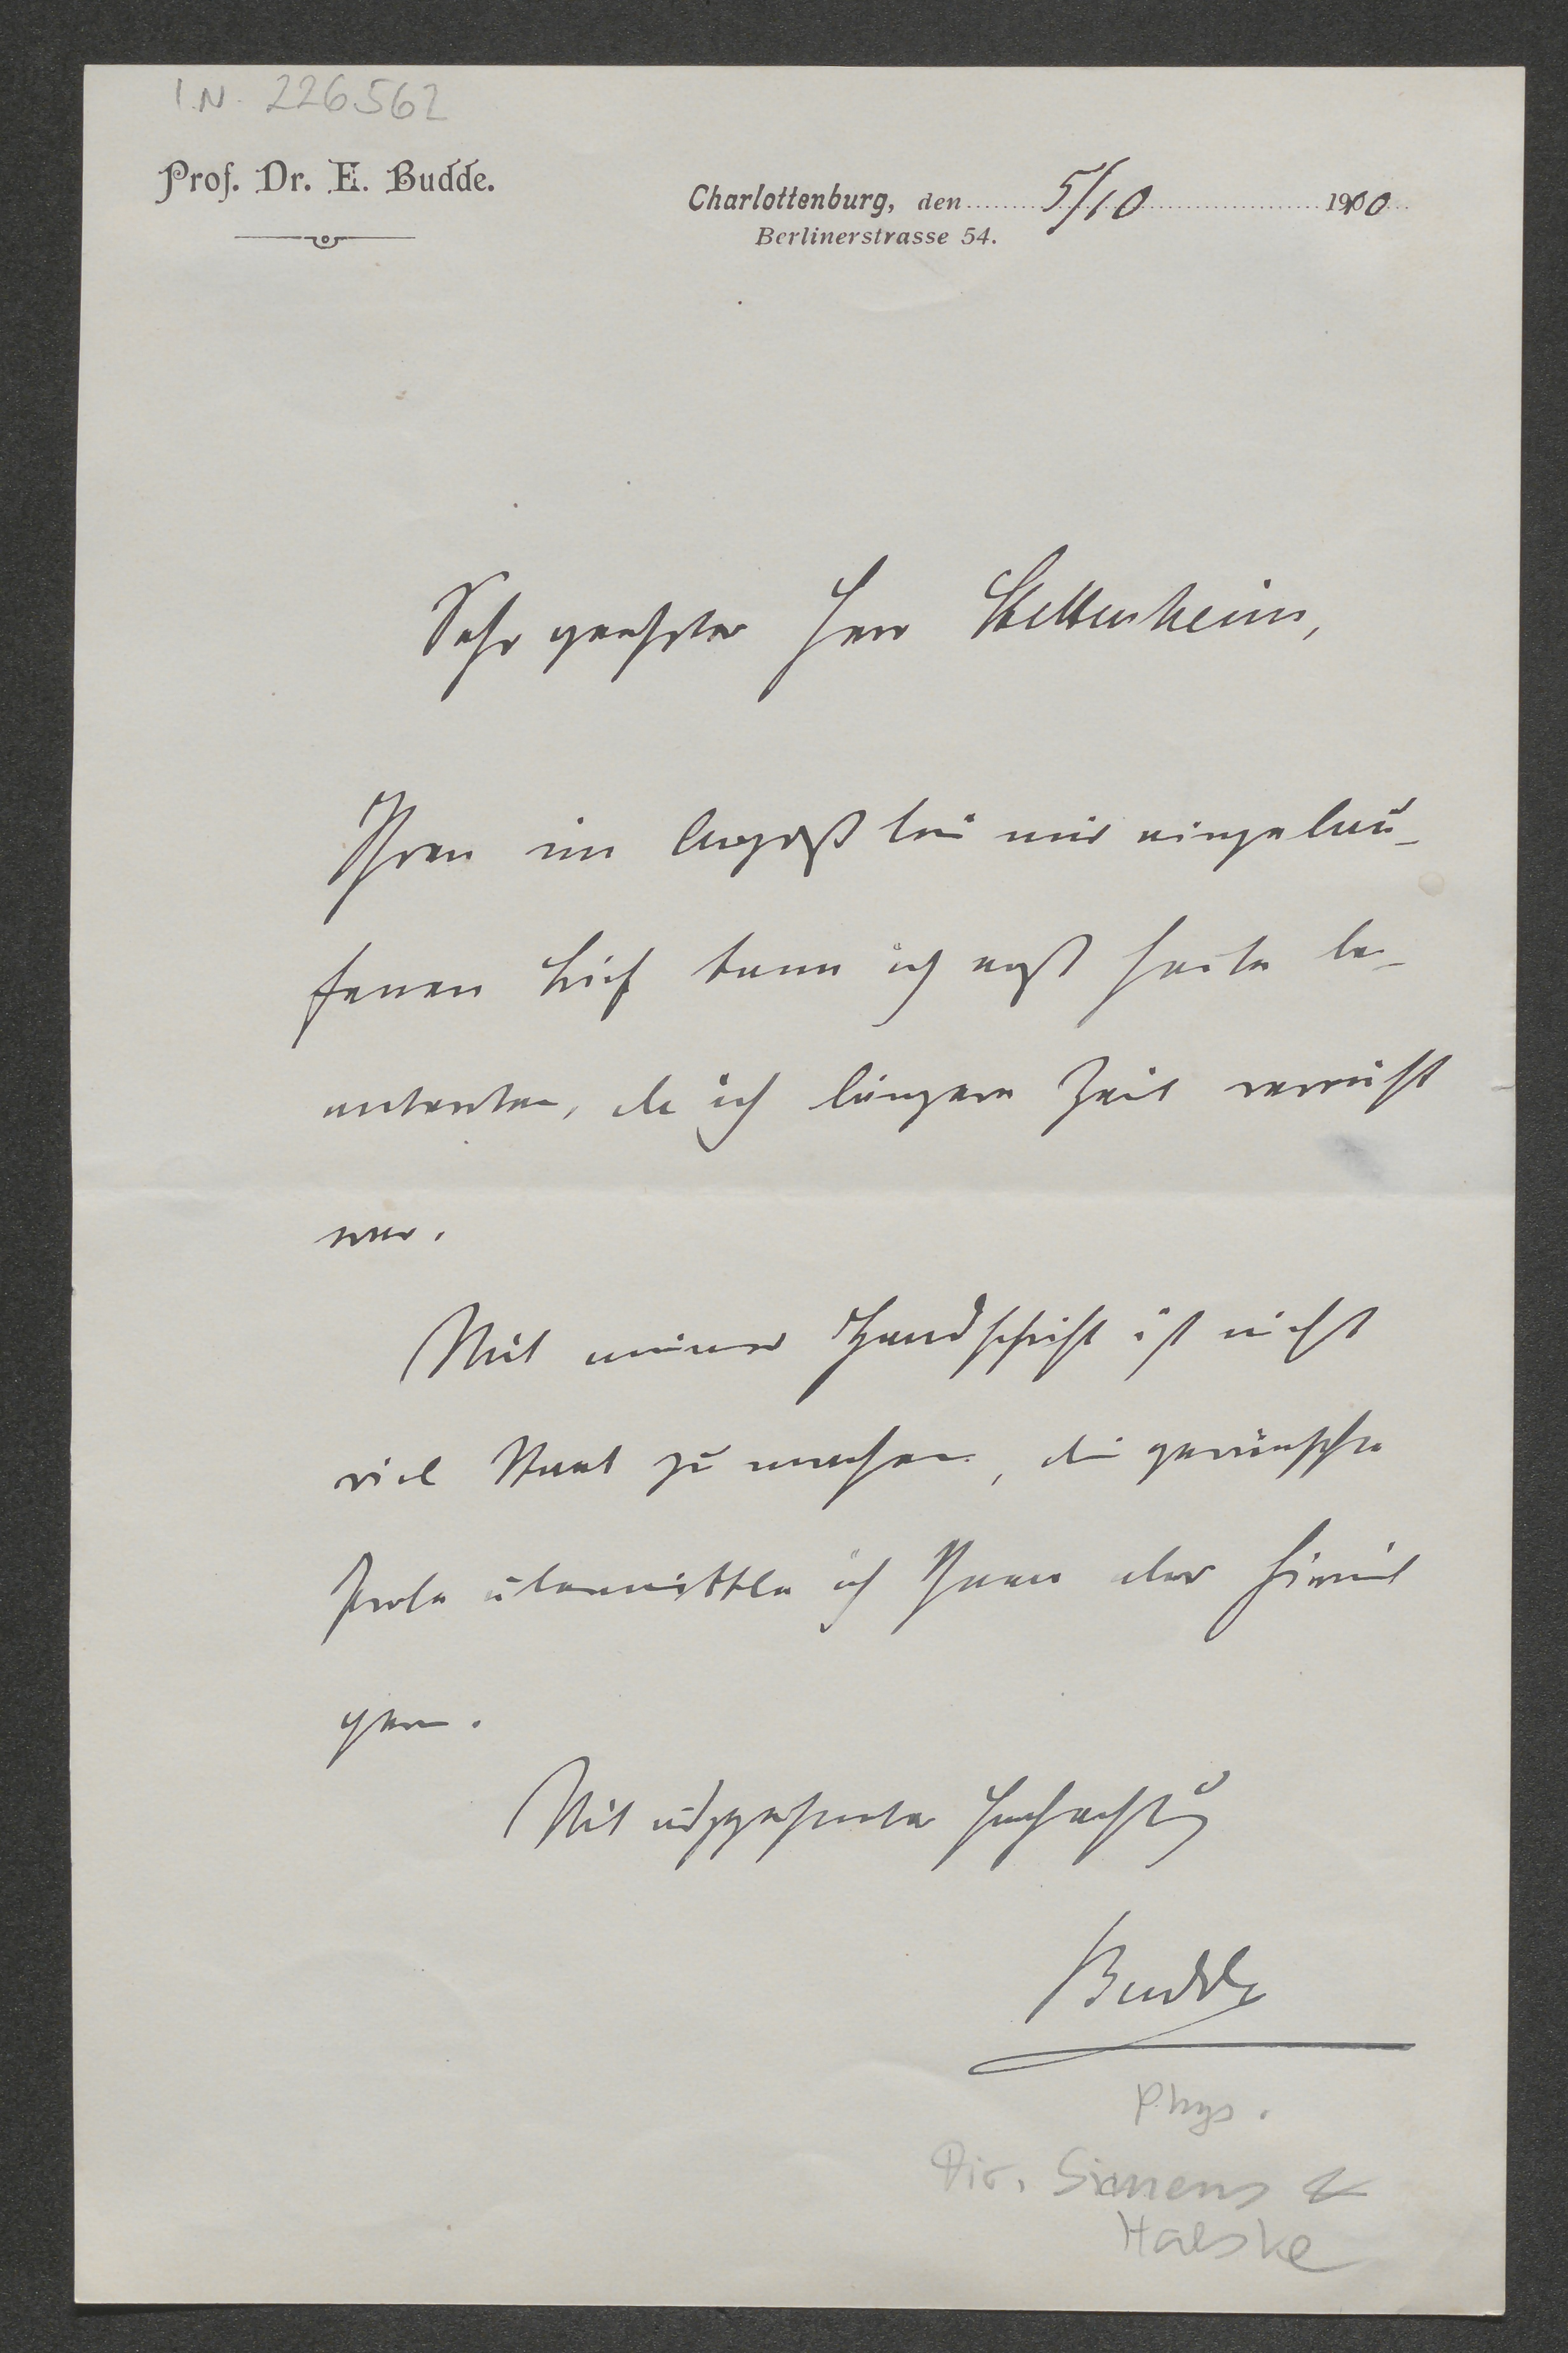 I.N. 226.562
Prof. Dr. E. Budde.
Charlottenburg, den 5/10 1910
Berlinerstrasse 54.
Sehr geehrter Herr Stettenheim,
Ihren im August bei mir eingelau-
fenen Brief kann ich erst heute be-
antworten, da ich längere Zeit verreist
war.
Mit meiner Handschrift ist nicht
viel Staat zu machen, die gewünschte
Probe übermittle ich Ihnen aber hiermit
gern.
Mit ausgezeichneter Hochachtung
Budde
Phys.
Dir. Siemens &
Halske